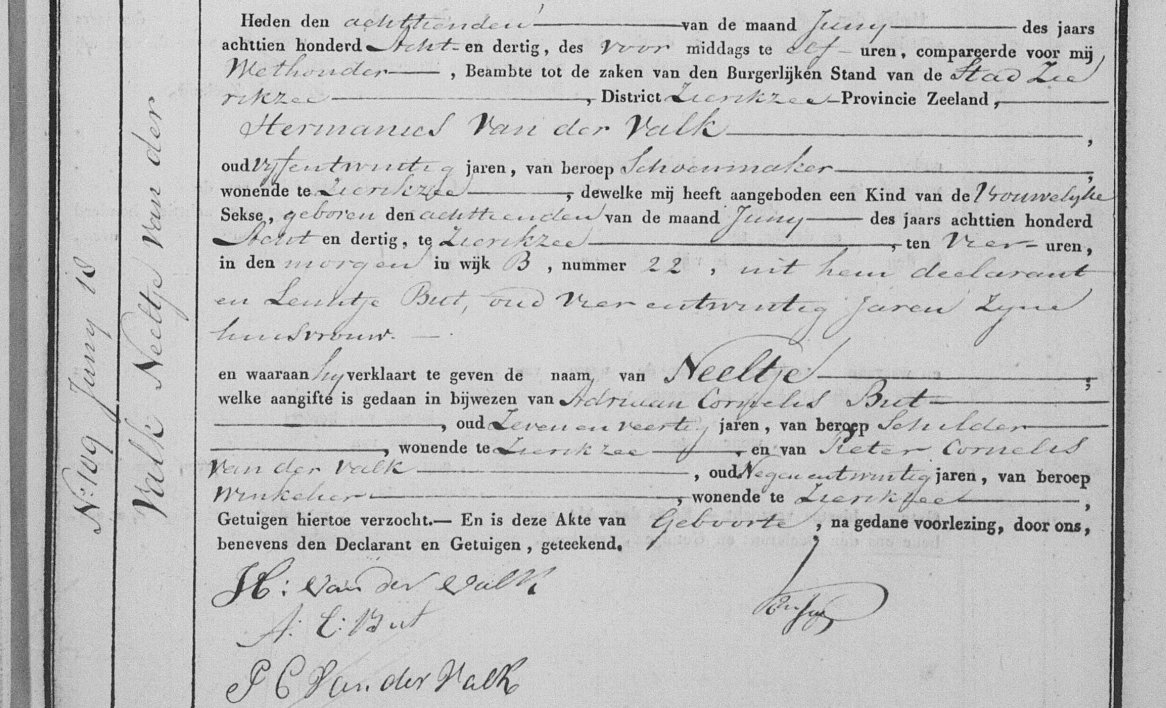 N: 109 Juny 18
Valk Neeltje Van der
Heden den achttienden van de maand Juny des jaars
achttien honderd Acht en dertig, des voor middags te elf uren, compareerde voor mij
Wethouder, Beambte tot de zaken van den Burgerlijken Stand van de Stad Zie
rikzee, District Zierikzee Provincie Zeeland,
Hermanus Van der Valk,
oud Vyfentwintig jaren, van beroep Schoenmaker,
wonende te Zierikzee, dewelke mij heeft aangeboden een Kind van de Vrouwelyke
Sekse, geboren den achttienden van de maand Juny des jaars achttien honderd
Acht en dertig, te Zierikzee, ten Vier uren,
in den morgen in wijk B, nummer 22, uit hem declarant
en Leuntje But, oud Vier entwintig Jaren Zyne
huisvrouw.
en waaraan hy verklaart te geven de naam van Neeltje;
welke aangifte is gedaan in bijwezen van Adriaan Cornelis But
, oud Zeven en veertig jaren, van beroep Schilder
, wonende te Zierikzee, en van Pieter Cornelis
Van der Valk, oud Negenentwintig jaren, van beroep
Winkelier, wonende te Zierikzee,
Getuigen hiertoe verzocht.— En is deze Akte van Geboorte, na gedane voorlezing, door ons,
benevens den Declarant en Getuigen, geteekend.
H: Van der Valk
A: C: But
P C Van der Valk